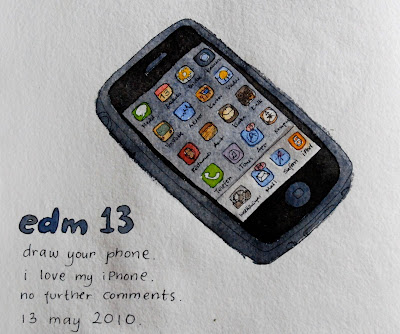 edm 13
draw your phone.
i love my iPhone.
no further comments.
13 may 2010.